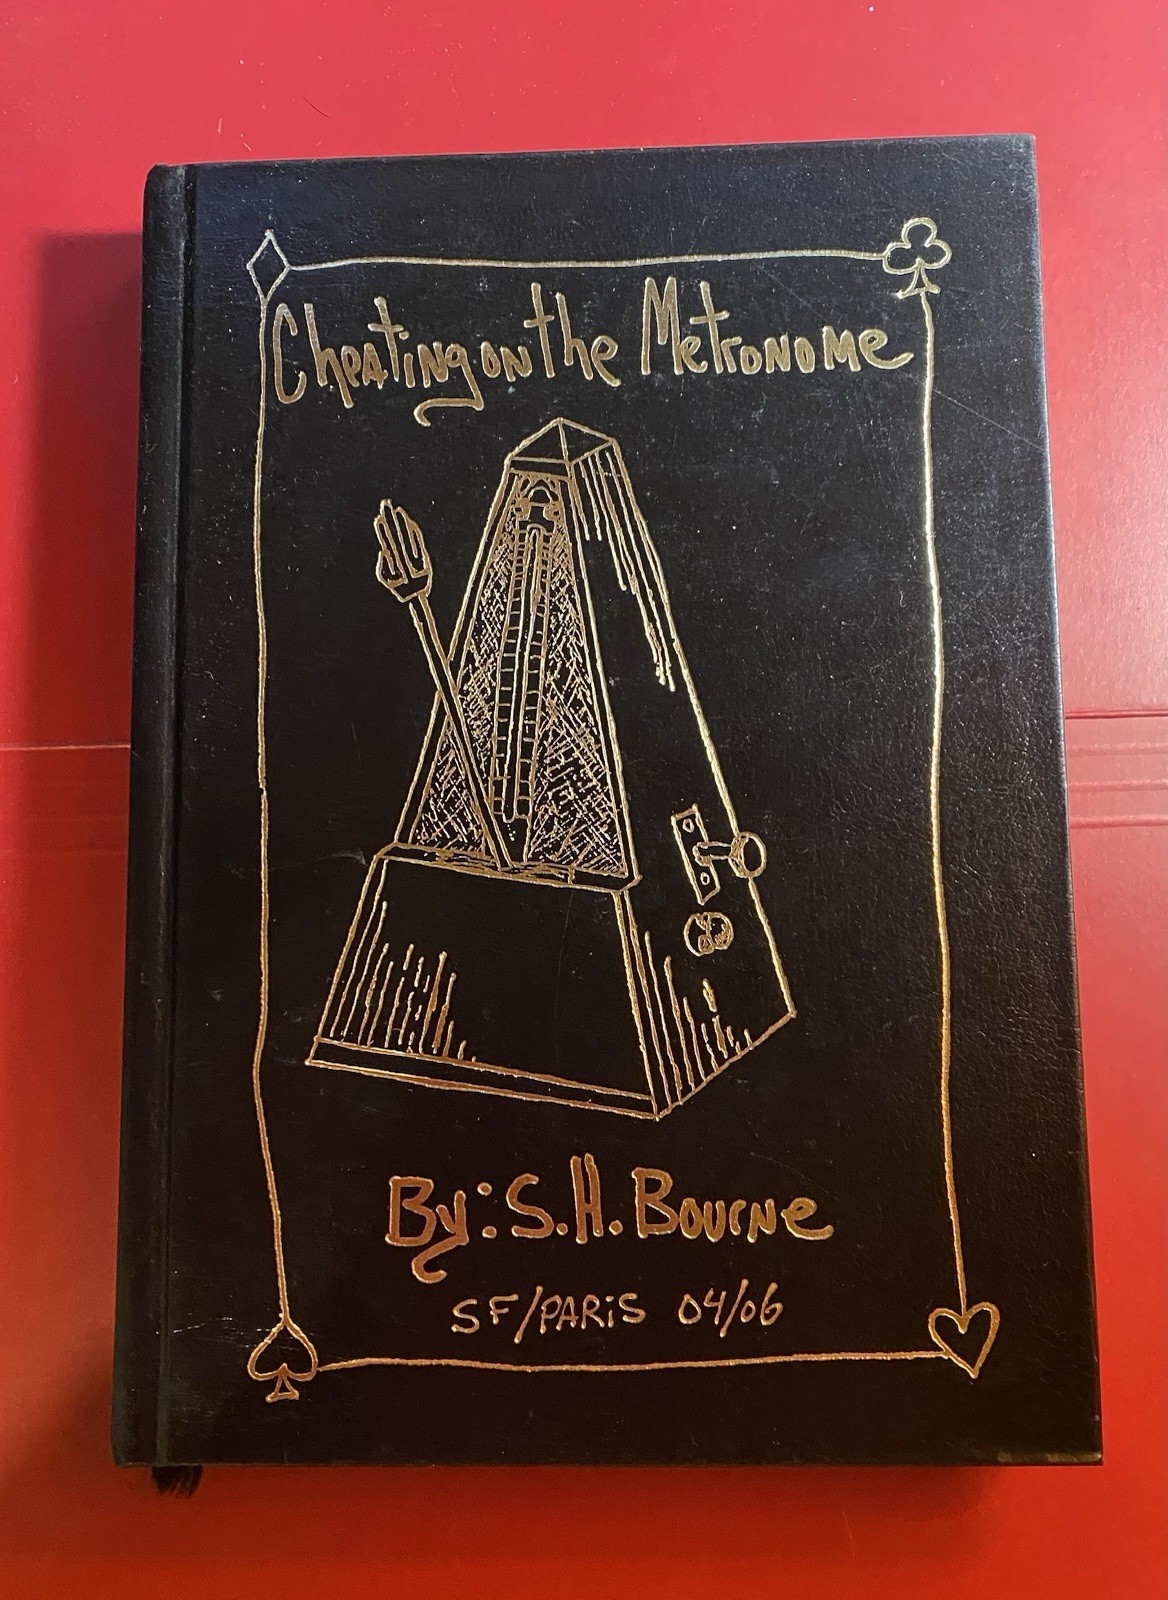 Cheating on the Metronome
By: S.H. Bourne
SF/PARiS 04/06